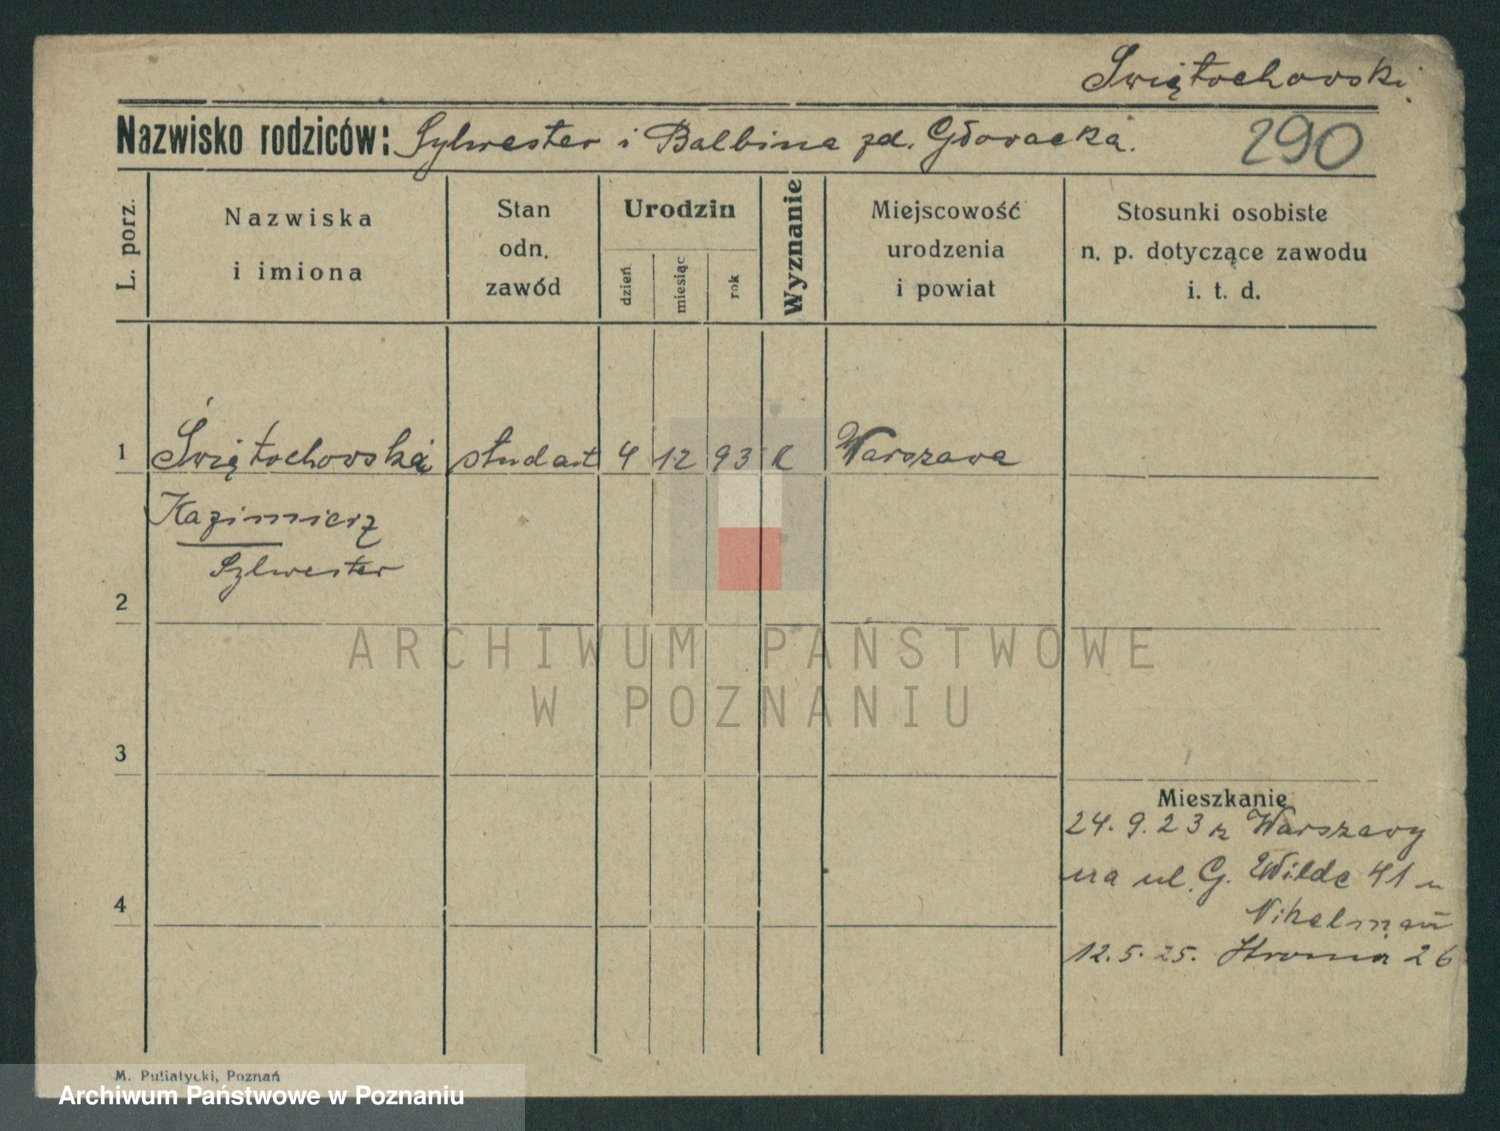 Świętochowski
Nazwisko rodziców: Sylwester i Balbina zd. Głowacka.
290
L. porz.
Nazwiska
i imiona
Stan
odn.
zawód
Urodzin
dzień
miesiąc
rok
Wyznanie
Miejscowość
urodzenia
i powiat
Stosunki osobiste
n. p. dotyczące zawodu
i. t. d.
1 Świętochowski student 4 12 93 k Warszawa
Kazimierz
Sylwester
2
ARCHIWUM PAŃSTWOWE
W POZNANIU
3
Mieszkanie
24.9.23 z Warszawy
na ul. G. Wilde 41 u
4
12.5.25. 26
M. Putiatycki, Poznań
Archiwum Państwowe w Poznaniu